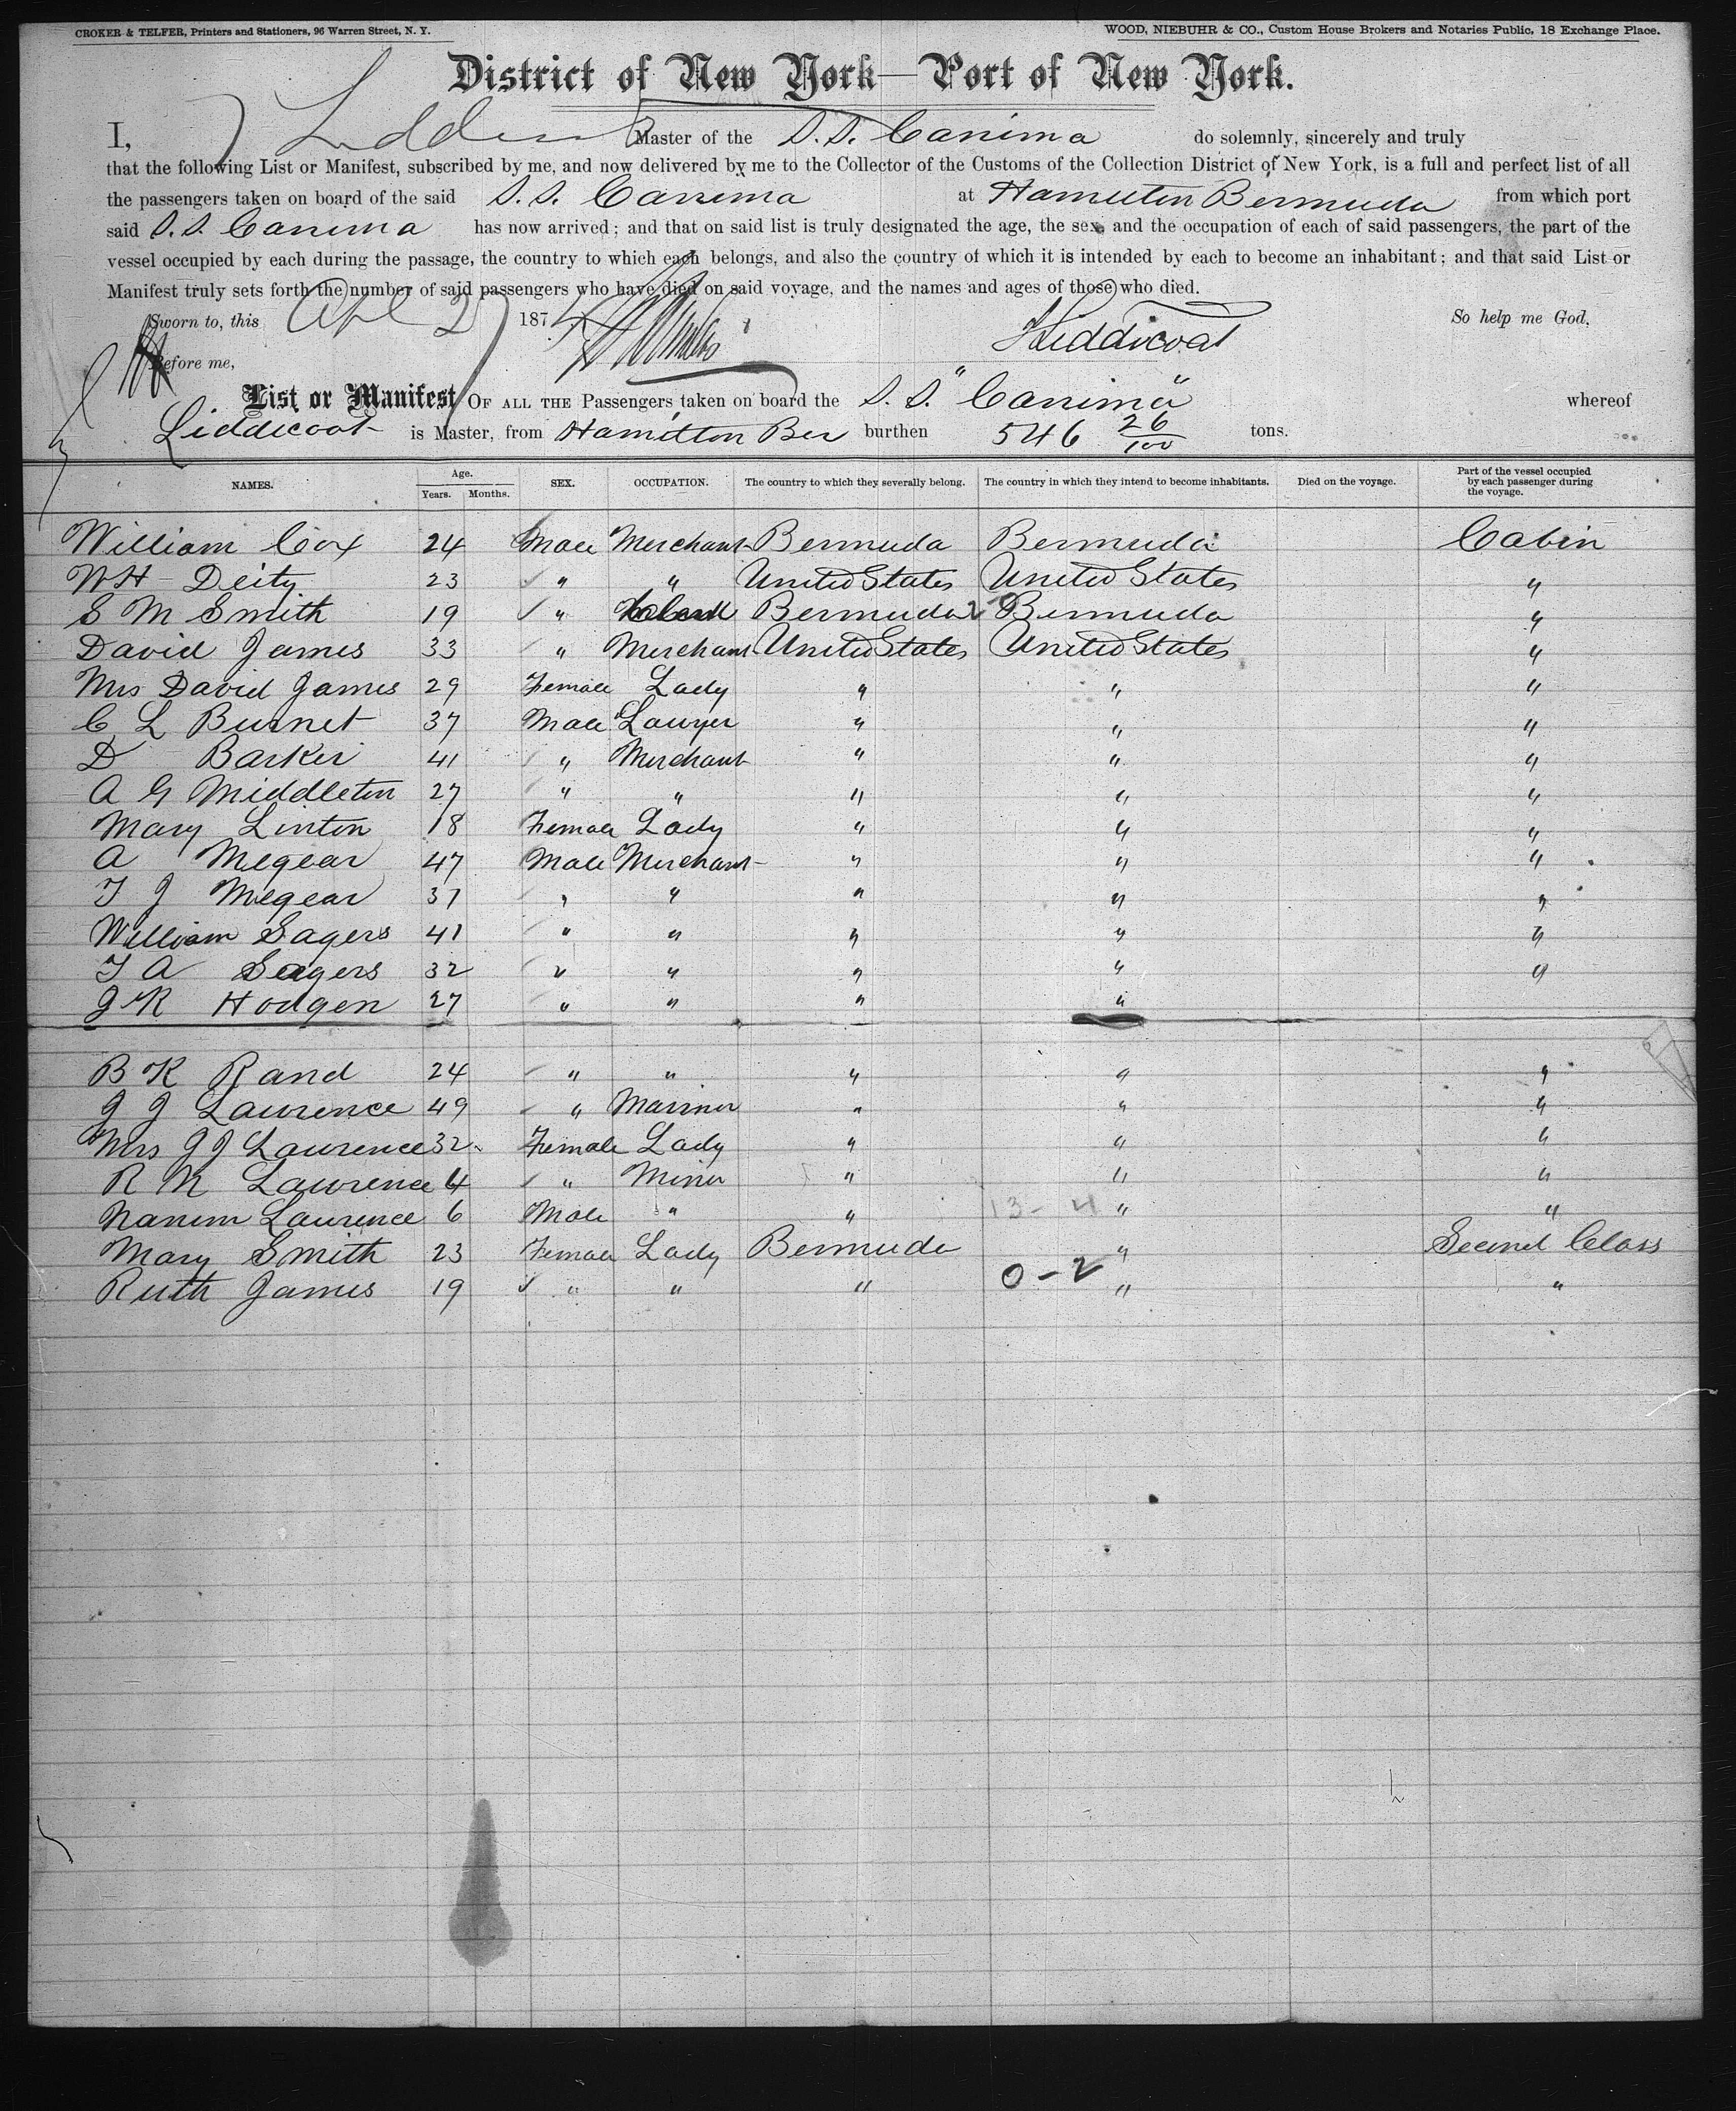 CROKER & TELFER, Printers and Stationers, 96 Warren Street, N. Y. WOOD, NIEBUHR & CO., Custom House Brokers and Notaries Public, 18 Exchange Place.
District of New York—Port of New York.
I, Master of the S.S. Canima do solemnly, sincerely and truly
that the following List or Manifest, subscribed by me, and now delivered by me to the Collector of the Customs of the Collection District of New York, is a full and perfect list of all
the passengers taken on board of the said S.S. Canima at Hamilton Bermuda from which port
said S.S. Canima has now arrived; and that on said list is truly designated the age, the sex, and the occupation of each of said passengers, the part of the
vessel occupied by each during the passage, the country to which each belongs, and also the country of which it is intended by each to become an inhabitant; and that said List or
Manifest truly sets forth the number of said passengers who have died on said voyage, and the names and ages of those who died.
Sworn to, this Apl 27 187 Liddicoat So help me God,
Before me,
List or Manifest OF ALL THE Passengers taken on board the S.S. "Canima" whereof
Liddicoat is Master, from Hamilton Ber burthen 546 26/100 tons.
NAMES. Age. Years. Months. SEX. OCCUPATION. The country to which they severally belong. The country in which they intend to become inhabitants. Died on the voyage. Part of the vessel occupied by each passenger during the voyage.
William Cox 24 Male Merchant Bermuda Bermuda Cabin
W H Deity 23 " " United States United States "
S M Smith 19 " Clerk Bermuda 2 Bermuda "
David James 33 " Merchant United States United States "
Mrs David James 29 Female Lady " " "
C L Burnet 37 Male Lawyer " " "
D Barker 41 " Merchant " " "
A G Middleton 27 " " " " "
Mary Linton 18 Female Lady " " "
A Megear 47 Male Merchant " " "
T J Megear 37 " " " " "
William Sagers 41 " " " " "
T A Sagers 32 " " " " "
J K Hodgen 27 " " " "
B K Rand 24 " " " " "
J J Laurence 49 " Mariner " " "
Mrs J J Laurence 32 Female Lady " " "
R M Lawrence 4 " Minor " " "
Laurence 6 Male " " 13-4 " "
Mary Smith 23 Female Lady Bermuda " Second Class
Ruth James 19 " " " 0-2 " "